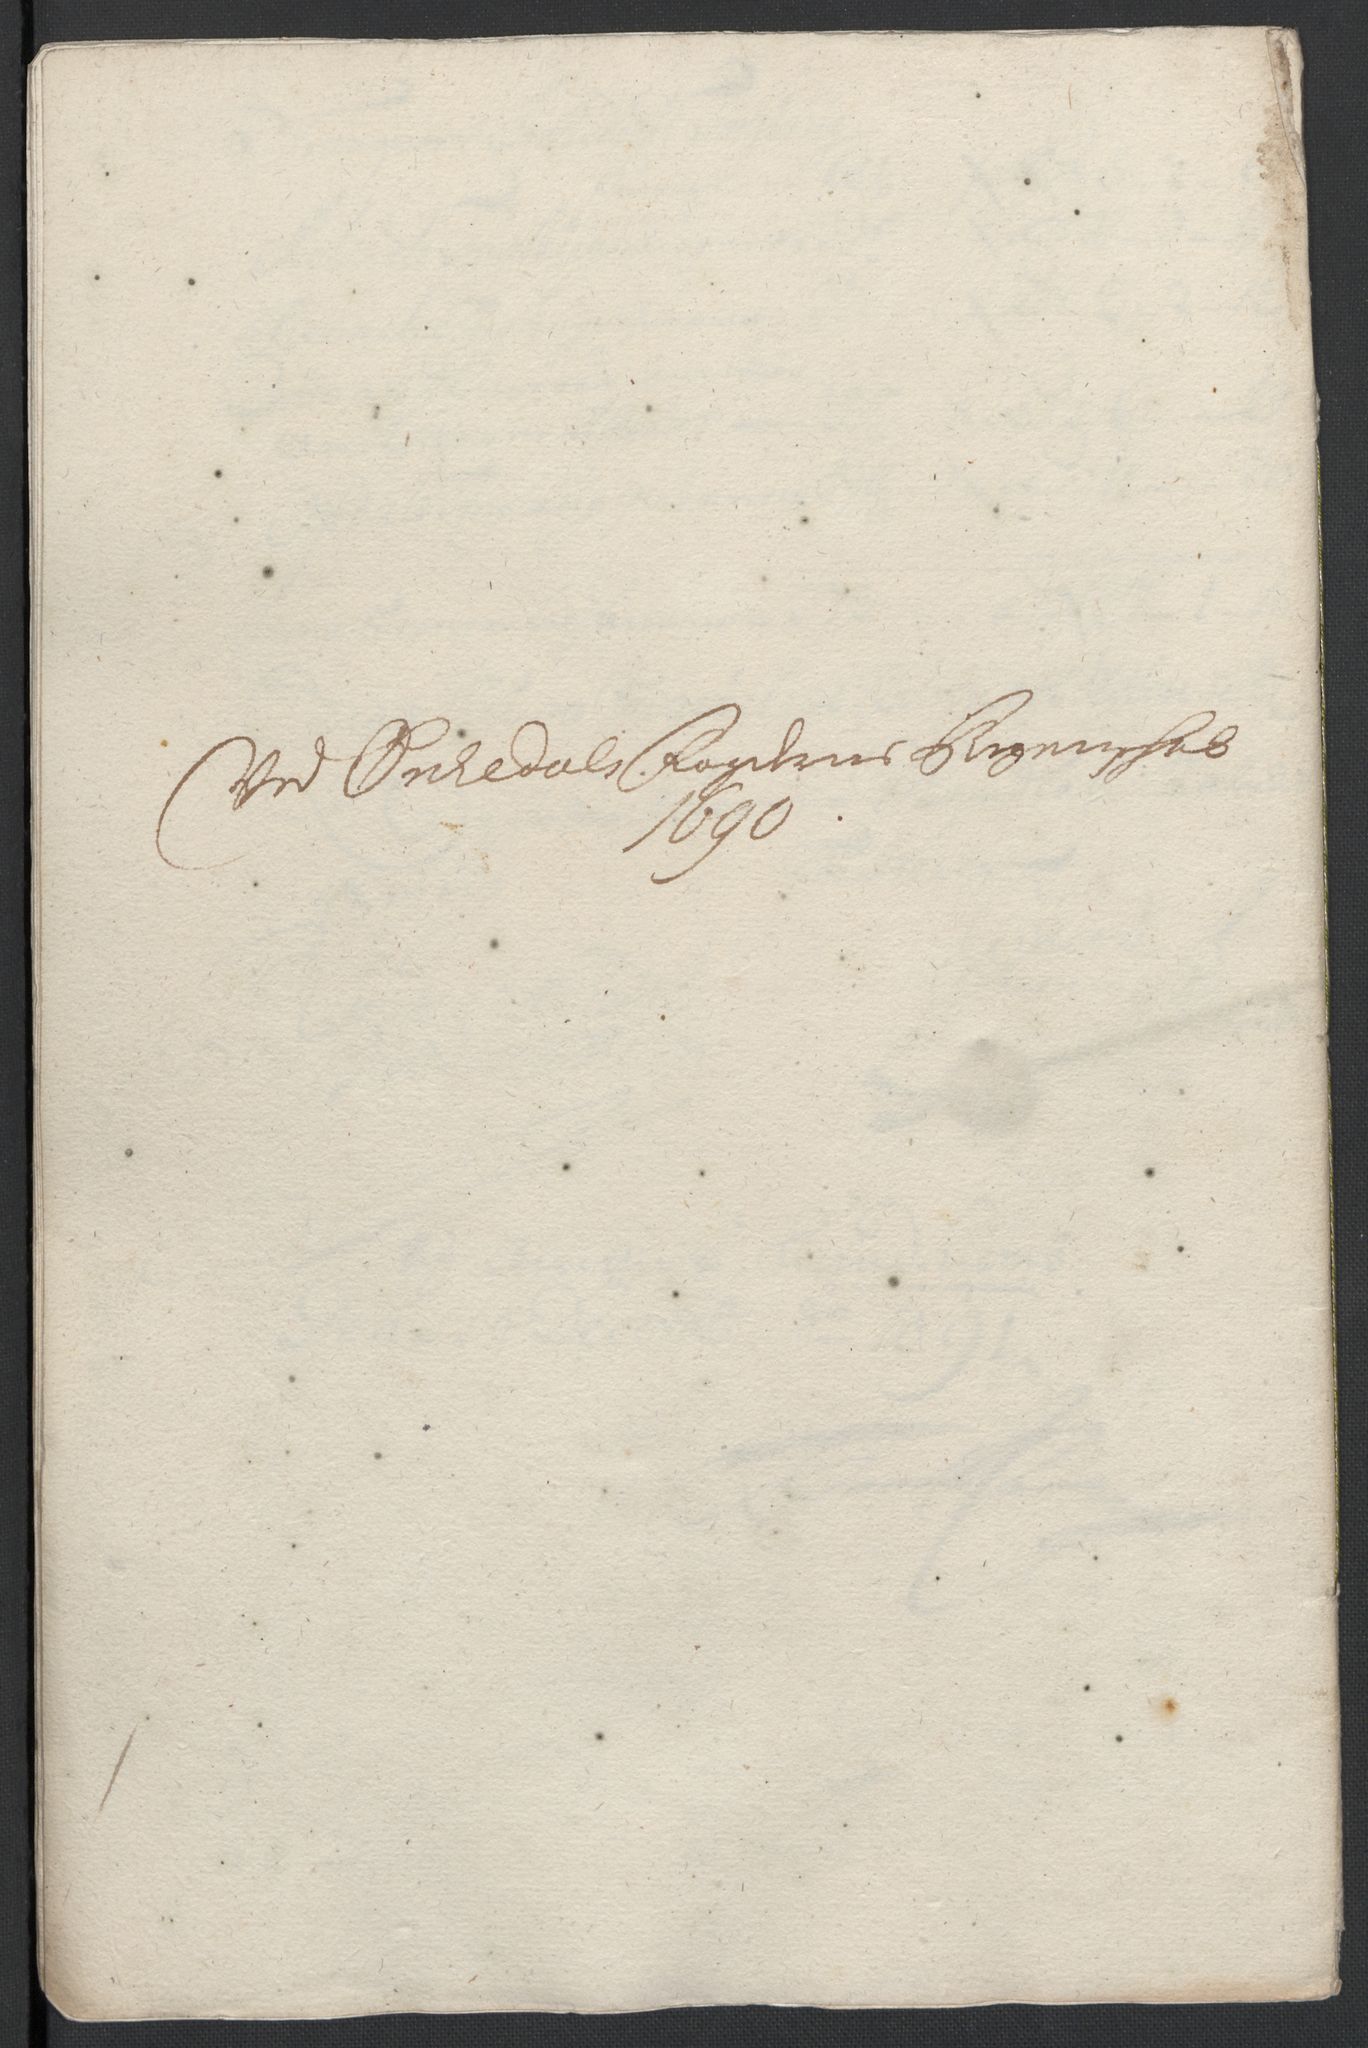 Ved Orkedals Fogderies Regenschab
1690